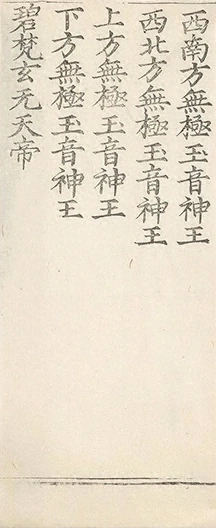 西南方無極玉音神王
西北方無極玉音神王
上方無極玉音神王
下方無極玉音神王
碧梵玄无天帝